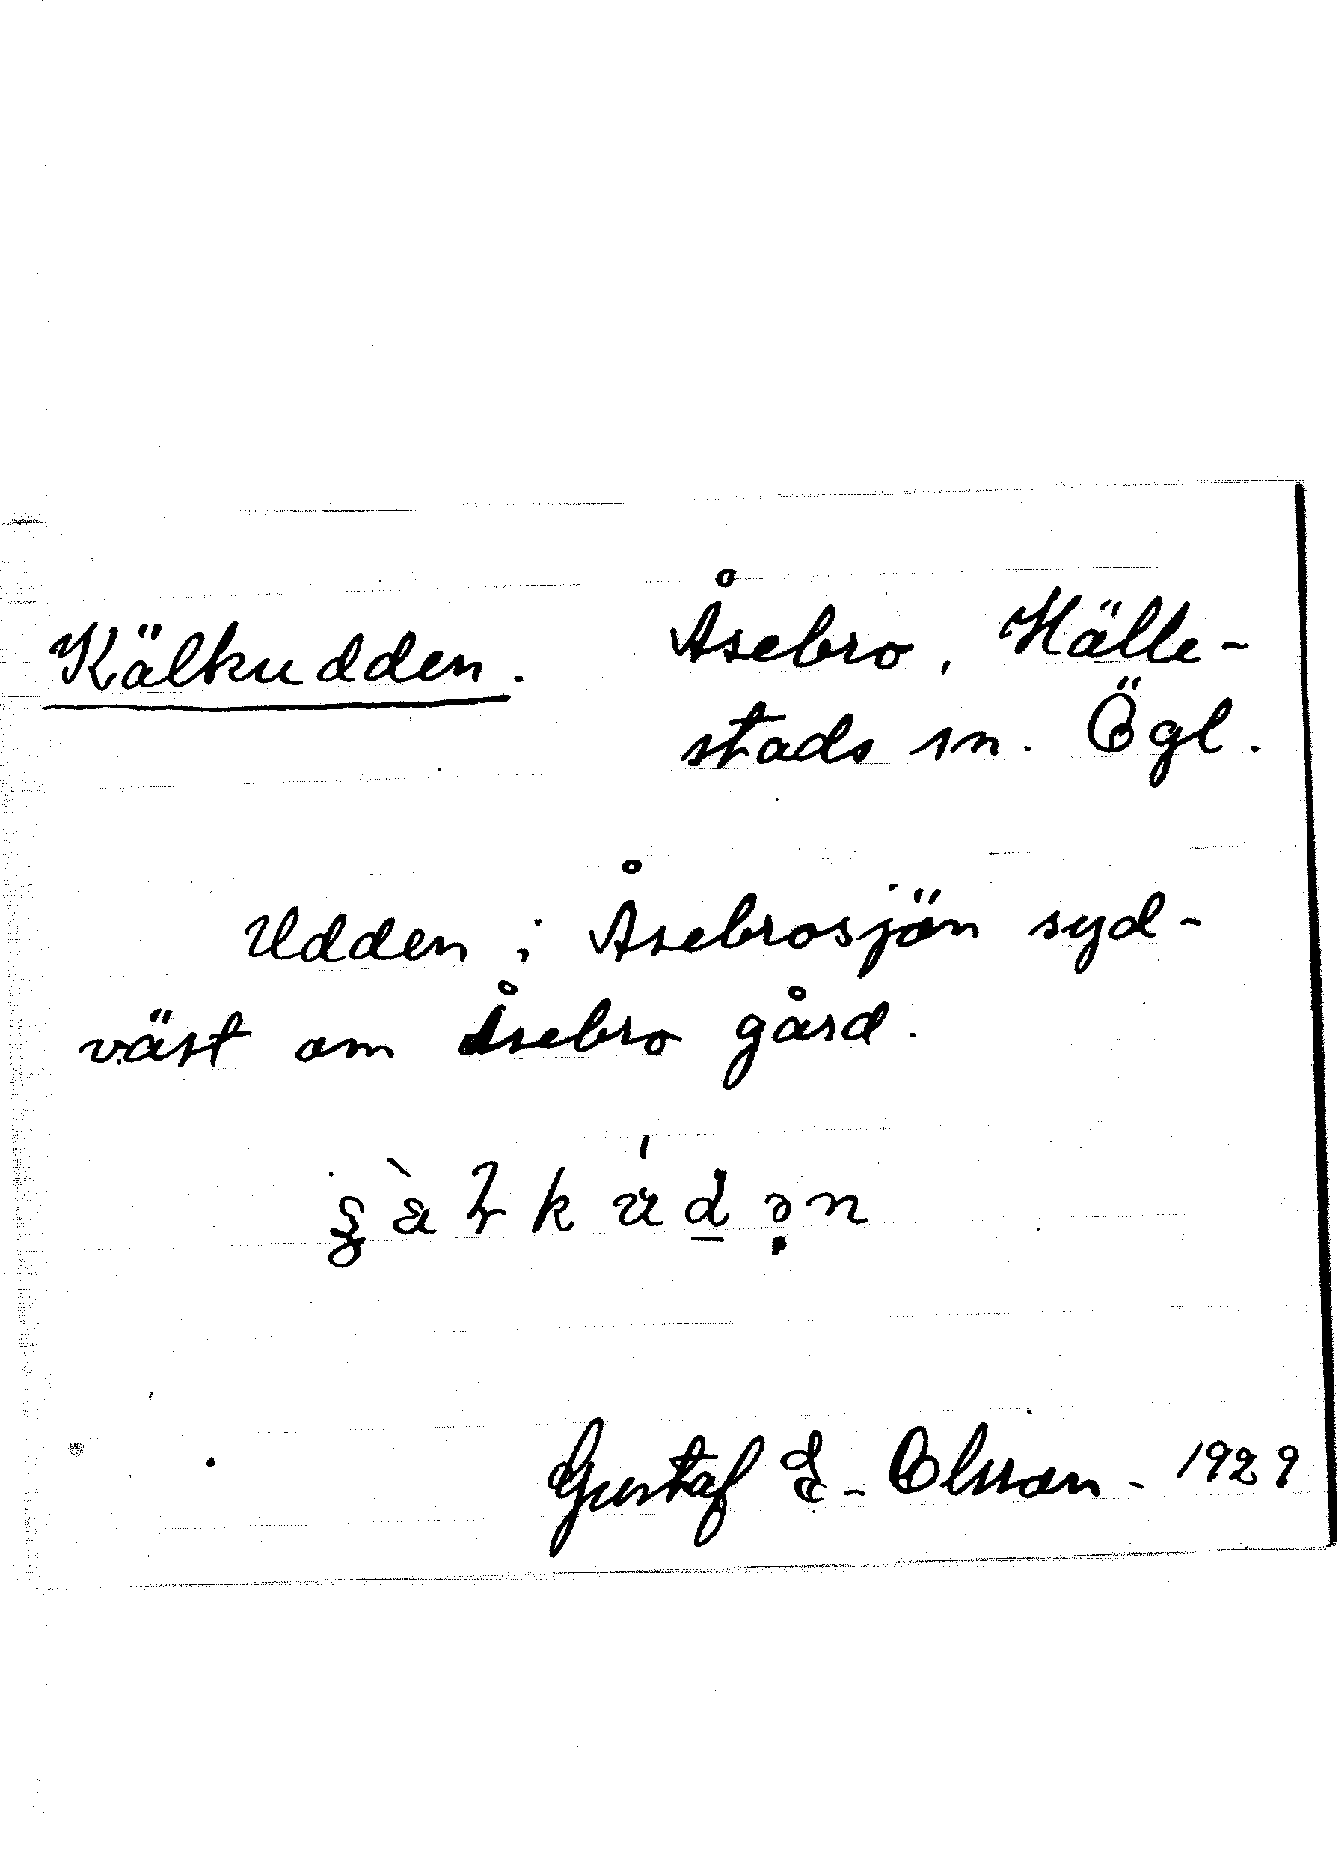 Kälkudden. Åsebro, Hälle-
stads sn. Ögl.
Udden i Åsebrosjön syd-
väst om Åsebro gård.
Gustaf E. Olsson - 1929